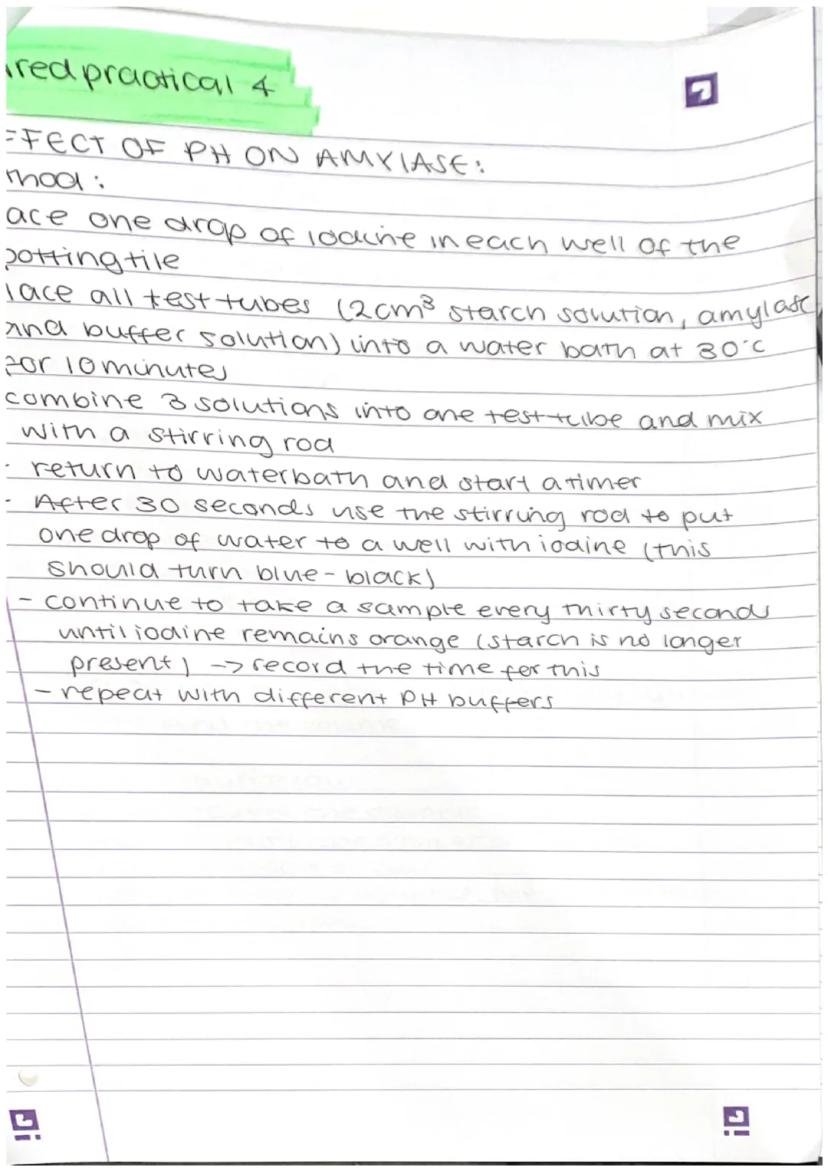 ired practical 4
FFECT OF PH ON AMYLASE:
thod:
ace one drop of iodine in each well of the
potting tile
lace all test tubes (2cm³ starch solution, amylase
and buffer solution) into a water bath at 30°C
for 10 minutes
combine 3 solutions into one test tube and mix
with a stirring rod
- return to waterbath and start a timer
- After 30 seconds use the stirring rod to put
one drop of water to a well with iodine (this
should turn blue-black)
- continue to take a sample every thirty seconds
until iodine remains orange (starch is no longer
present) -> record the time for this
- repeat with different PH buffers